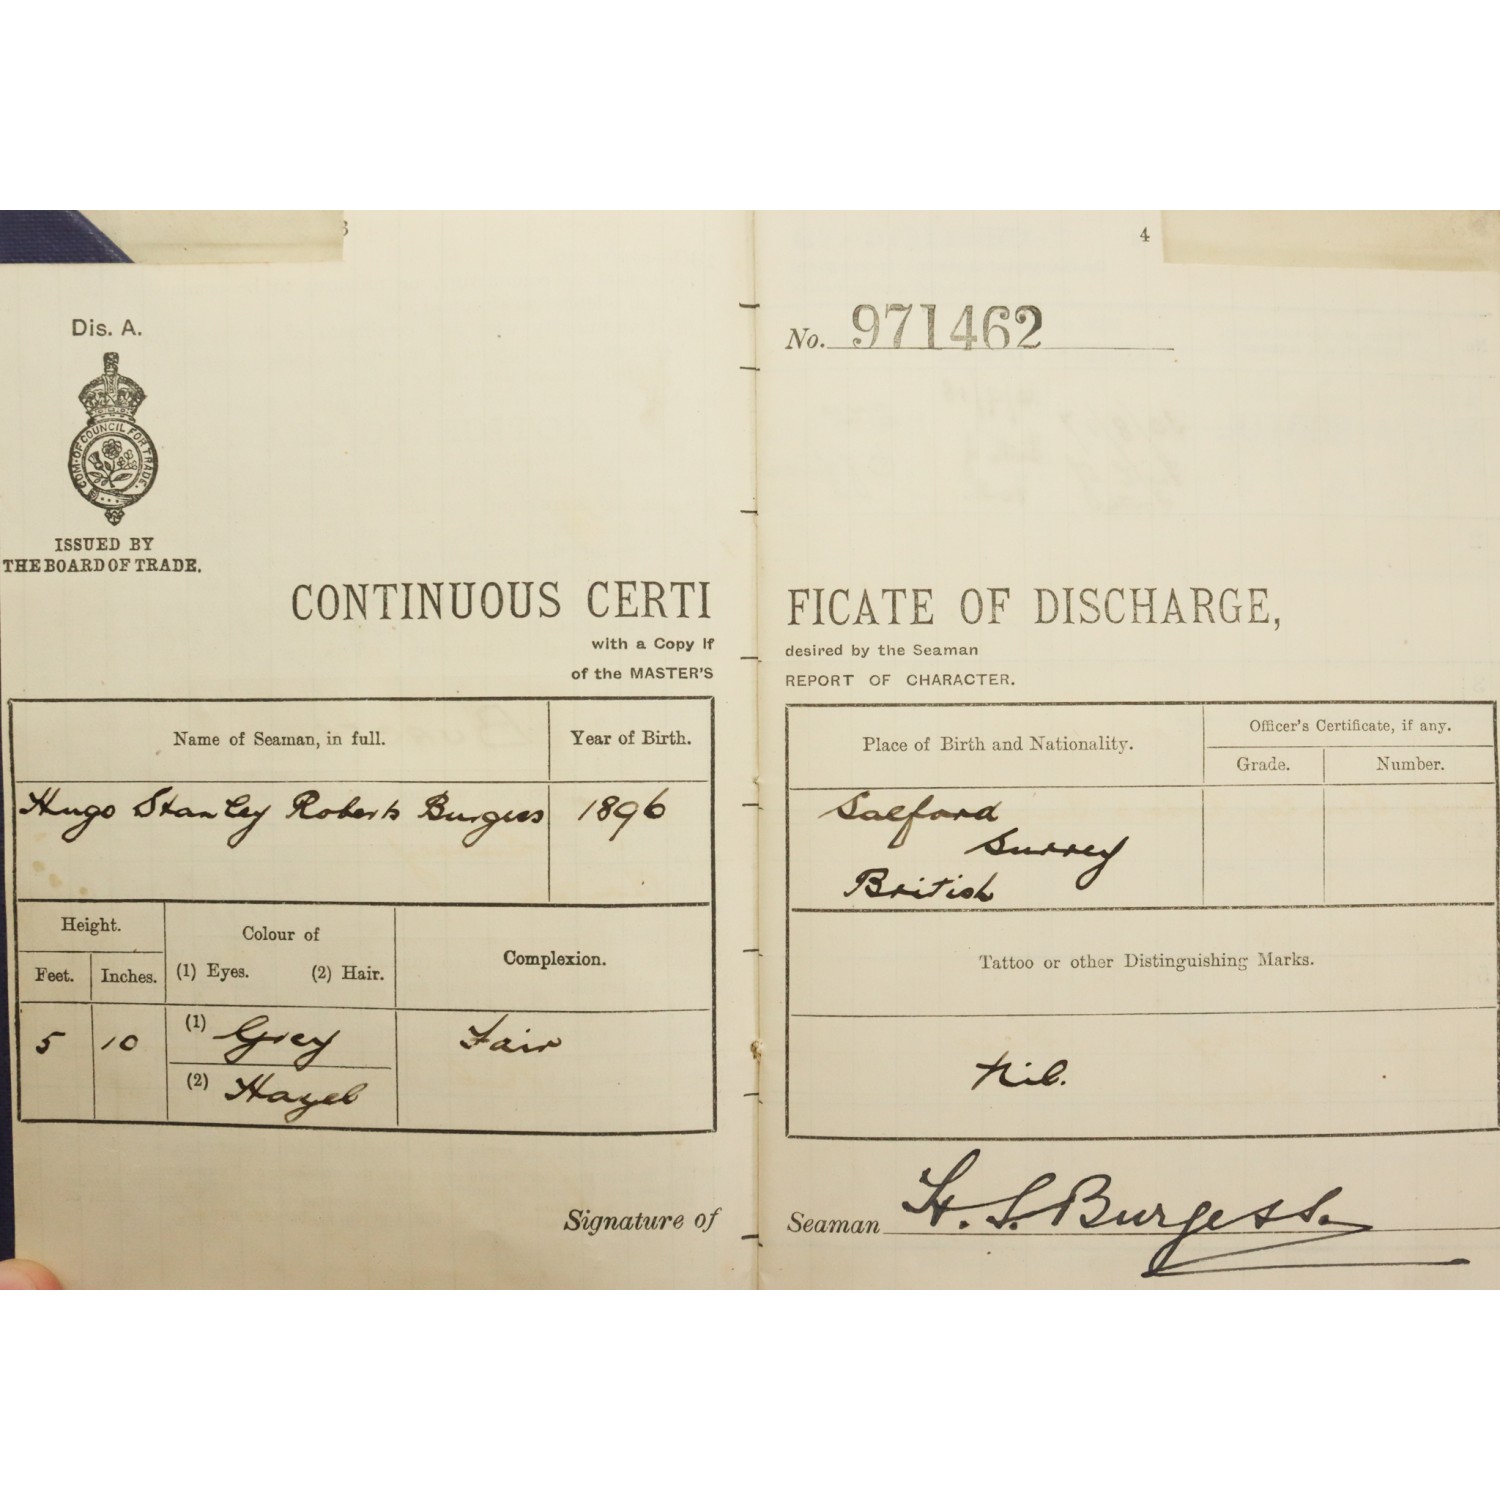 3
Dis. A.
COM. OF COUNCIL FOR TRADE.
ISSUED BY
THE BOARD OF TRADE.
CONTINUOUS CERTI
with a Copy if
of the MASTER'S
Name of Seaman, in full.
Year of Birth.
Hugo Stanley Roberts Burgess
1896
Height.
Colour of
Complexion.
Feet.
Inches.
(1) Eyes.
(2) Hair.
5
10
(1) Grey
Fair
(2) Hazel
Signature of
4
No. 971462
FICATE OF DISCHARGE,
desired by the Seaman
REPORT OF CHARACTER.
Place of Birth and Nationality.
Officer's Certificate, if any.
Grade.
Number.
Salford
Surrey
British
Tattoo or other Distinguishing Marks.
Nil.
Seaman H. S. Burgess.